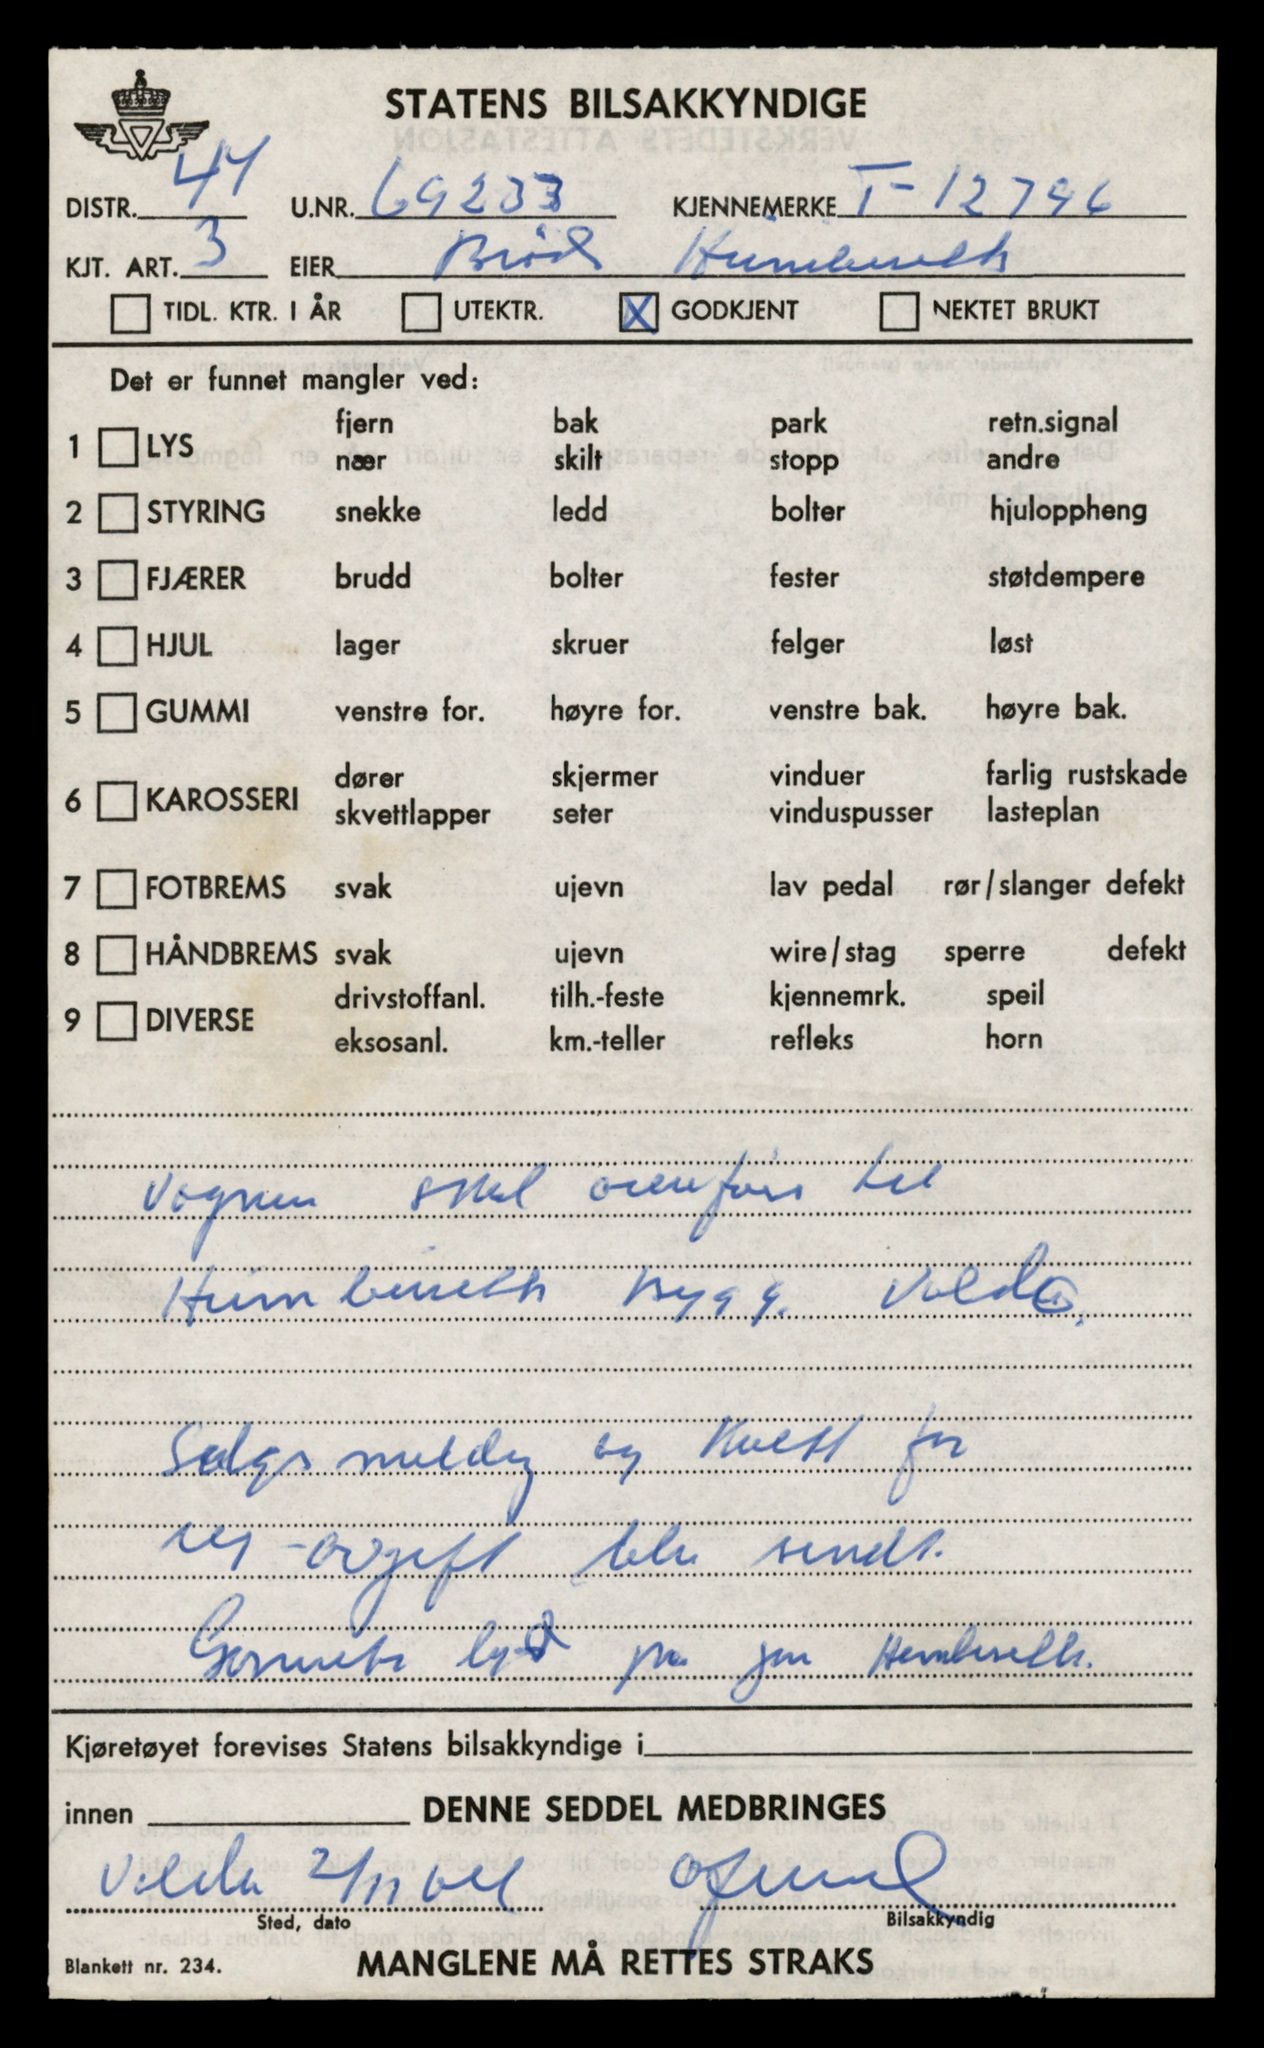 STATENS BILSAKKYNDIGE
DISTR. 44 U.NR. 69233 KJENNEMERKE T-12796
KJT. ART. 3 EIER Brød. Humberseth
TIDL. KTR. I ÅR UTEKTR. X GODKJENT NEKTET BRUKT
Det er funnet mangler ved:
fjern bak park retn.signal
1 LYS
nær skilt stopp andre
2 STYRING snekke ledd bolter hjuloppheng
3 FJÆRER brudd bolter fester støtdempere
4 HJUL lager skruer felger løst
5 GUMMI venstre for. høyre for. venstre bak. høyre bak.
dører skjermer vinduer farlig rustskade
6 KAROSSERI
skvettlapper seter vinduspusser lasteplan
7 FOTBREMS svak ujevn lav pedal rør/slanger defekt
8 HÅNDBREMS svak ujevn wire/stag sperre defekt
drivstoffanl. tilh.-feste kjennemrk. speil
9 DIVERSE
eksosanl. km.-teller refleks horn
Vognen skal overføres til
Humberseth bygg. Volda.
Salgsmelding og kvett for
reg-avgift ble sendt.
lyd på Humberseth.
Kjøretøyet forevises Statens bilsakkyndige i
innen DENNE SEDDEL MEDBRINGES
Volda 2/11
Sted, dato Bilsakkyndig
Blankett nr. 234. MANGLENE MÅ RETTES STRAKS